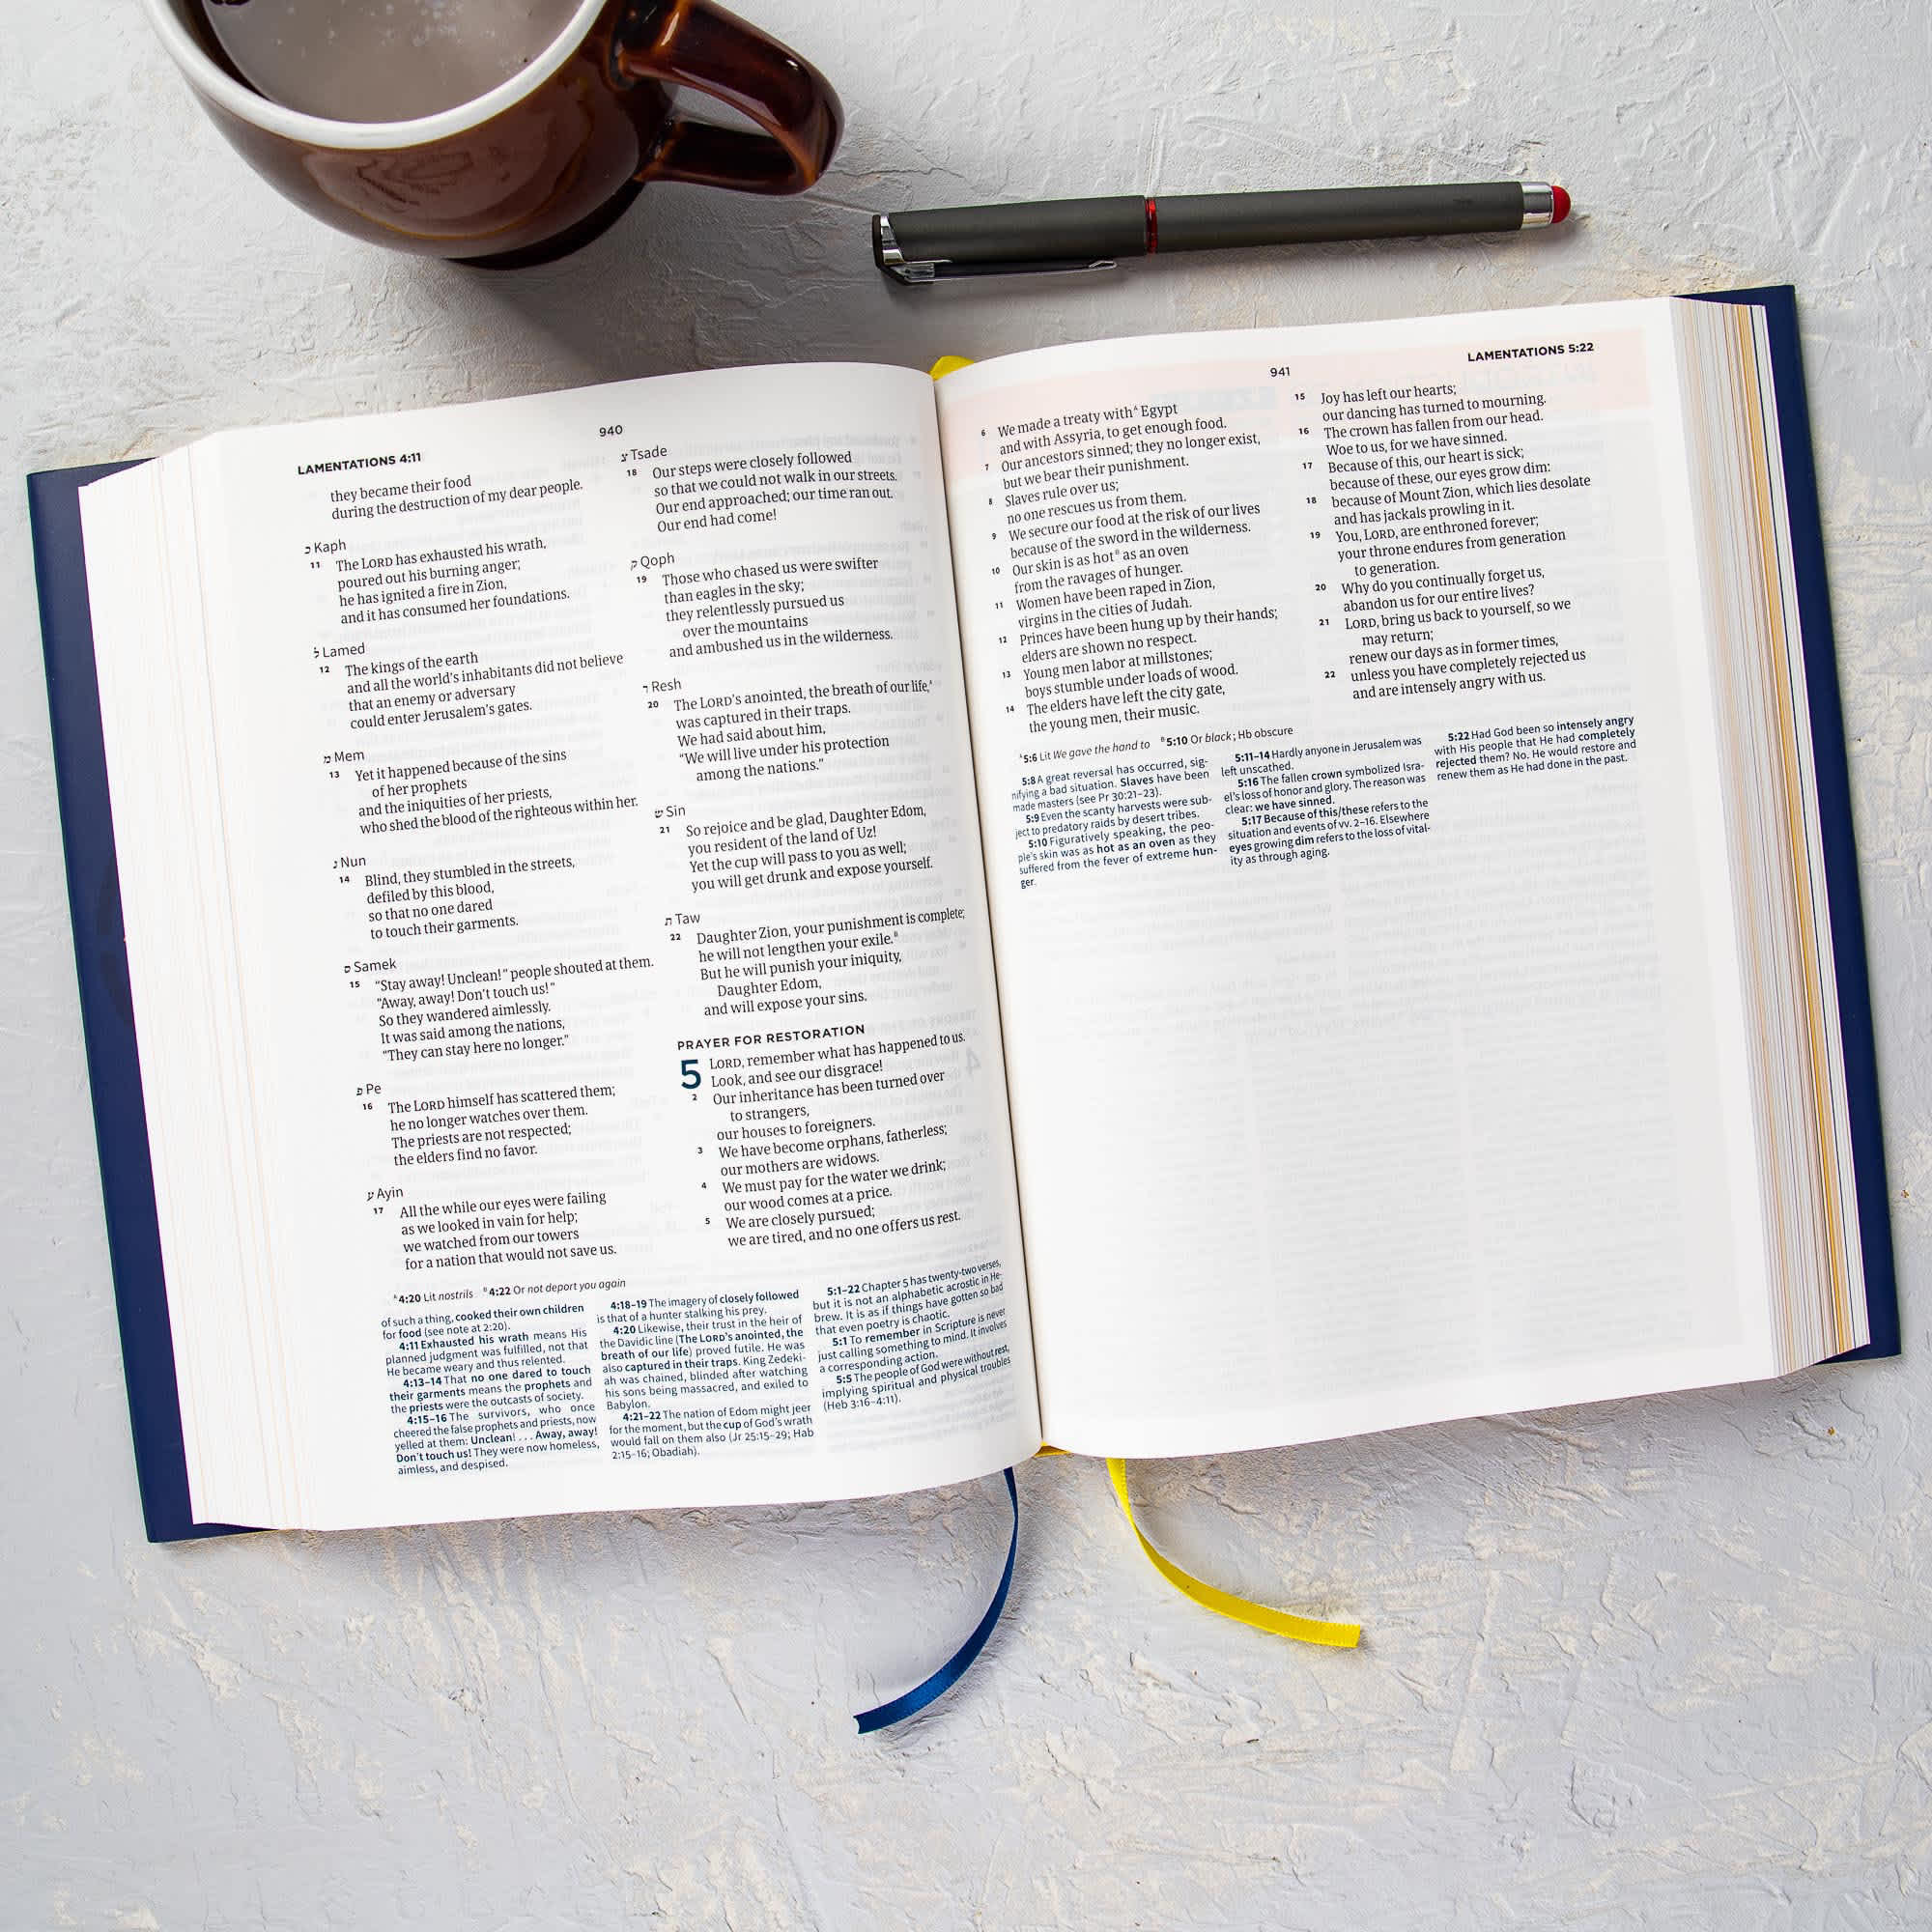 LAMENTATIONS 4:11
940
they became their food
during the destruction of my dear people.
כ Kaph
11 The LORD has exhausted his wrath,
poured out his burning anger;
he has ignited a fire in Zion,
and it has consumed her foundations.
ל Lamed
12 The kings of the earth
and all the world's inhabitants did not believe
that an enemy or adversary
could enter Jerusalem's gates.
מ Mem
13 Yet it happened because of the sins
of her prophets
and the iniquities of her priests,
who shed the blood of the righteous within her.
נ Nun
14 Blind, they stumbled in the streets,
defiled by this blood,
so that no one dared
to touch their garments.
ס Samek
15 "Stay away! Unclean!" people shouted at them.
"Away, away! Don't touch us!"
So they wandered aimlessly.
It was said among the nations,
"They can stay here no longer."
פ Pe
16 The LORD himself has scattered them;
he no longer watches over them.
The priests are not respected;
the elders find no favor.
ע Ayin
17 All the while our eyes were failing
as we looked in vain for help;
we watched from our towers
for a nation that would not save us.
צ Tsade
18 Our steps were closely followed
so that we could not walk in our streets.
Our end approached; our time ran out.
Our end had come!
ק Qoph
19 Those who chased us were swifter
than eagles in the sky;
they relentlessly pursued us
over the mountains
and ambushed us in the wilderness.
ר Resh
20 The LORD's anointed, the breath of our life,ᴬ
was captured in their traps.
We had said about him,
"We will live under his protection
among the nations."
ש Sin
21 So rejoice and be glad, Daughter Edom,
you resident of the land of Uz!
Yet the cup will pass to you as well;
you will get drunk and expose yourself.
ת Taw
22 Daughter Zion, your punishment is complete;
he will not lengthen your exile.ᴮ
But he will punish your iniquity,
Daughter Edom,
and will expose your sins.
PRAYER FOR RESTORATION
5 LORD, remember what has happened to us.
Look, and see our disgrace!
2 Our inheritance has been turned over
to strangers,
our houses to foreigners.
3 We have become orphans, fatherless;
our mothers are widows.
4 We must pay for the water we drink;
our wood comes at a price.
5 We are closely pursued;
we are tired, and no one offers us rest.
ᴬ4:20 Lit nostrils ᴮ4:22 Or not deport you again
of such a thing, cooked their own children
for food (see note at 2:20).
4:11 Exhausted his wrath means His
planned judgment was fulfilled, not that
He became weary and thus relented.
4:13–14 That no one dared to touch
their garments means the prophets and
the priests were the outcasts of society.
4:15–16 The survivors, who once
cheered the false prophets and priests, now
yelled at them: Unclean! . . . Away, away!
Don't touch us! They were now homeless,
aimless, and despised.
4:18–19 The imagery of closely followed
is that of a hunter stalking his prey.
4:20 Likewise, their trust in the heir of
the Davidic line (The LORD's anointed, the
breath of our life) proved futile. He was
also captured in their traps. King Zedeki-
ah was chained, blinded after watching
his sons being massacred, and exiled to
Babylon.
4:21–22 The nation of Edom might jeer
for the moment, but the cup of God's wrath
would fall on them also (Jr 25:15–29; Hab
2:15–16; Obadiah).
5:1–22 Chapter 5 has twenty-two verses,
but it is not an alphabetic acrostic in He-
brew. It is as if things have gotten so bad
that even poetry is chaotic.
5:1 To remember in Scripture is never
just calling something to mind. It involves
a corresponding action.
5:5 The people of God were without rest,
implying spiritual and physical troubles
(Heb 3:16–4:11).
941
LAMENTATIONS 5:22
6 We made a treaty withᴬ Egypt
and with Assyria, to get enough food.
7 Our ancestors sinned; they no longer exist,
but we bear their punishment.
8 Slaves rule over us;
no one rescues us from them.
9 We secure our food at the risk of our lives
because of the sword in the wilderness.
10 Our skin is as hotᴮ as an oven
from the ravages of hunger.
11 Women have been raped in Zion,
virgins in the cities of Judah.
12 Princes have been hung up by their hands;
elders are shown no respect.
13 Young men labor at millstones;
boys stumble under loads of wood.
14 The elders have left the city gate,
the young men, their music.
15 Joy has left our hearts;
our dancing has turned to mourning.
16 The crown has fallen from our head.
Woe to us, for we have sinned.
17 Because of this, our heart is sick;
because of these, our eyes grow dim:
18 because of Mount Zion, which lies desolate
and has jackals prowling in it.
19 You, LORD, are enthroned forever;
your throne endures from generation
to generation.
20 Why do you continually forget us,
abandon us for our entire lives?
21 LORD, bring us back to yourself, so we
may return;
renew our days as in former times,
22 unless you have completely rejected us
and are intensely angry with us.
ᴬ5:6 Lit We gave the hand to ᴮ5:10 Or black; Hb obscure
5:8 A great reversal has occurred, sig-
nifying a bad situation. Slaves have been
made masters (see Pr 30:21–23).
5:9 Even the scanty harvests were sub-
ject to predatory raids by desert tribes.
5:10 Figuratively speaking, the peo-
ple's skin was as hot as an oven as they
suffered from the fever of extreme hun-
ger.
5:11–14 Hardly anyone in Jerusalem was
left unscathed.
5:16 The fallen crown symbolized Isra-
el's loss of honor and glory. The reason was
clear: we have sinned.
5:17 Because of this/these refers to the
situation and events of vv. 2–16. Elsewhere
eyes growing dim refers to the loss of vital-
ity as through aging.
5:22 Had God been so intensely angry
with His people that He had completely
rejected them? No. He would restore and
renew them as He had done in the past.